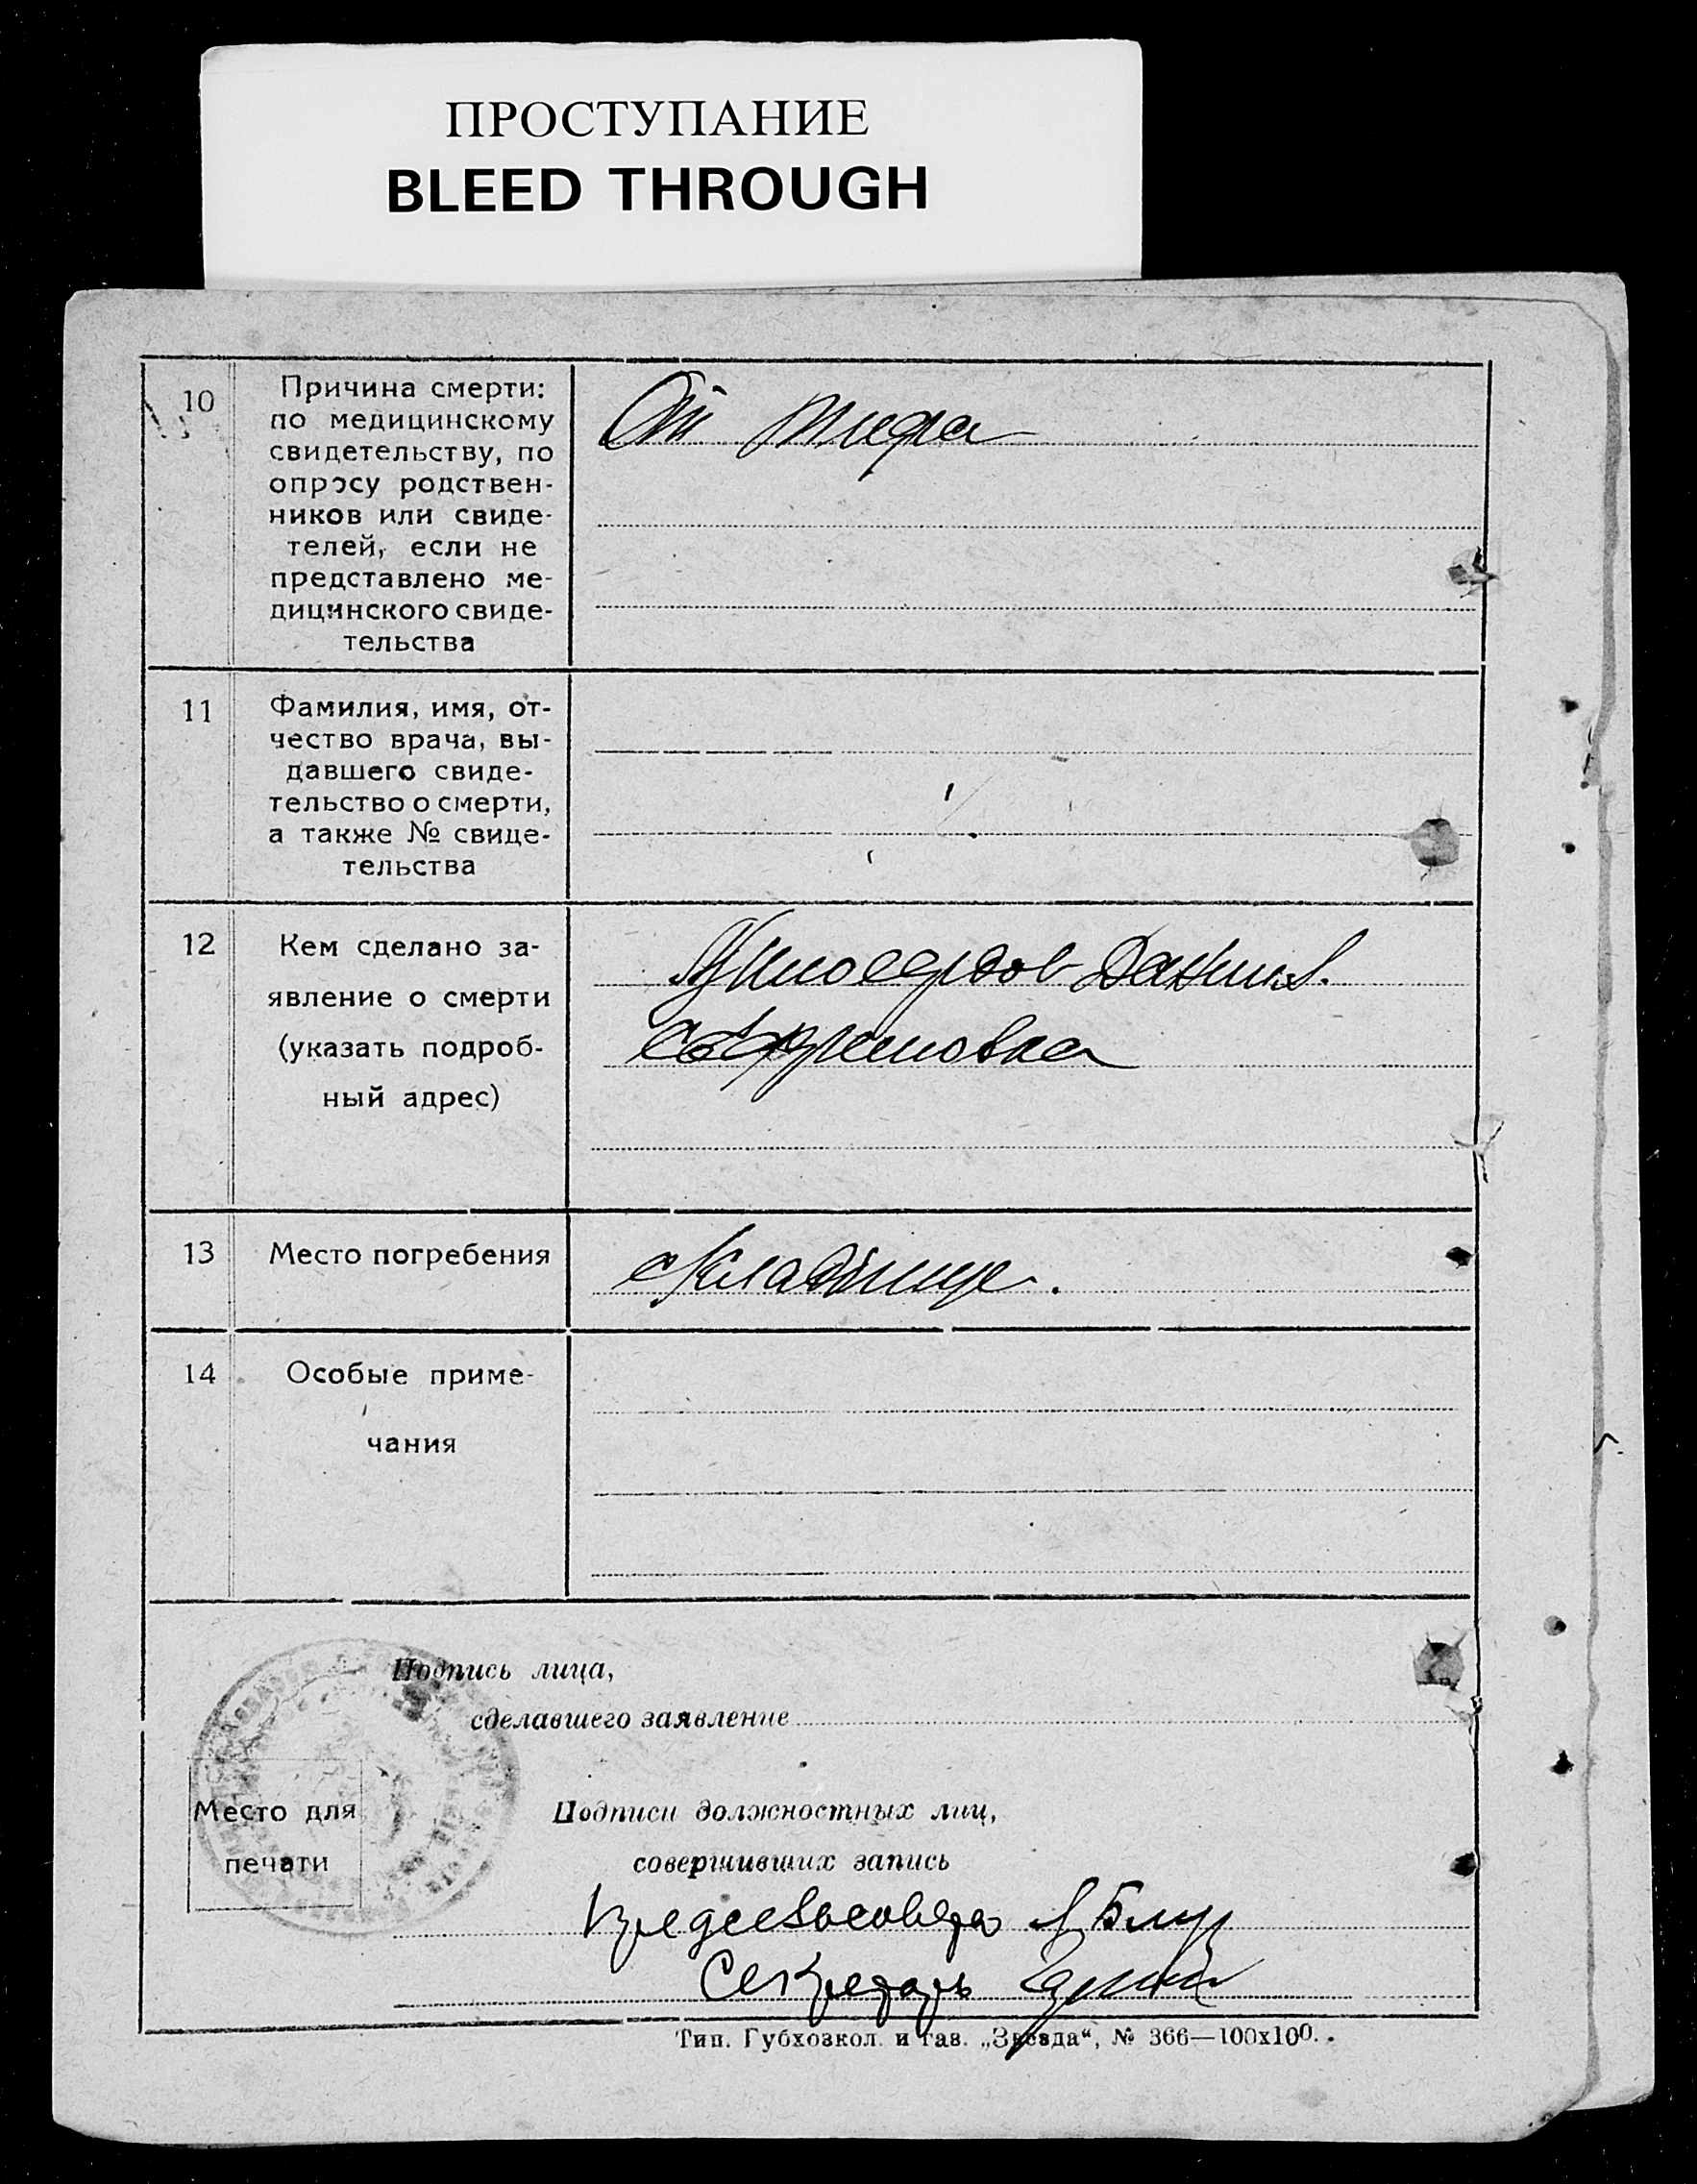 ПРОСТУПАНИЕ
BLEED THROUGH
10
Причина смерти:
по медицинскому
свидетельству, по
опросу родствен-
ников или свиде-
телей, если не
представлено ме-
дицинского свиде-
тельства
От тифа
11
Фамилия, имя, от-
чество врача, вы-
давшего свиде-
тельство о смерти,
а также № свиде-
тельства
12
Кем сделано за-
явление о смерти
(указать подроб-
ный адрес)
Данил.
13
Место погребения
Кладбище.
14
Особые приме-
чания
Подпись лица,
сделавшего заявление
Место для
печати
Подписи должностных лиц,
совершивших запись
Предсельсовета
Секретарь
Тип. Губхозкол. и газ. „Звезда“, № 366—100х100.